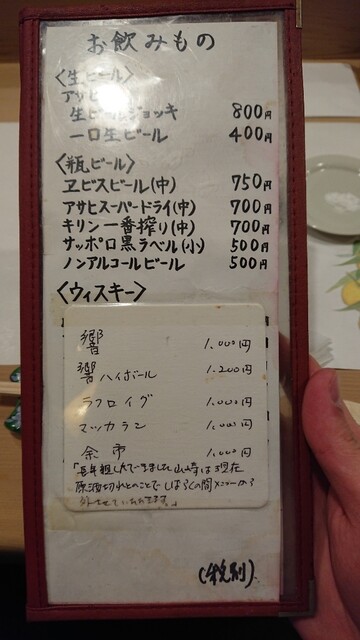 お飲みもの
〈生ビール〉
アサヒ
生ビールジョッキ 800円
一口生ビール 400円
〈瓶ビール〉
ヱビスビール(中) 750円
アサヒスーパードライ(中) 700円
キリン一番搾り(中) 700円
サッポロ黒ラベル(小) 500円
ノンアルコールビール 500円
〈ウィスキー〉
響 1,000円
響ハイボール 1,200円
ラフロイグ 1,000円
マッカラン 1,000円
余市 1,000円
「長年親しんできました山崎は現在
原酒切れとのことでしばらくの間メニューから
(税別)